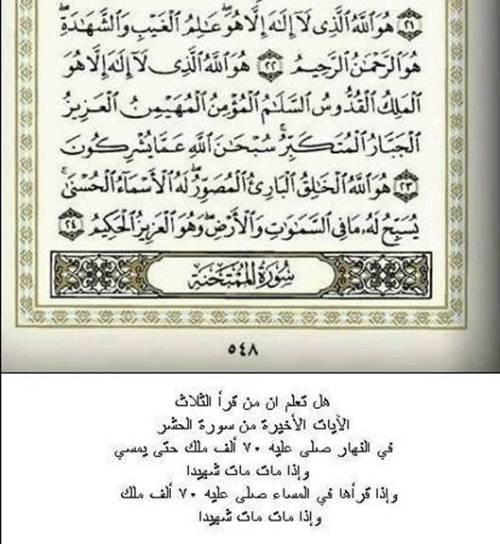 ﴿٢١﴾ هُوَ ٱللَّهُ ٱلَّذِى لَآ إِلَٰهَ إِلَّا هُوَ ۖ عَٰلِمُ ٱلْغَيْبِ وَٱلشَّهَٰدَةِ ۖ
هُوَ ٱلرَّحْمَٰنُ ٱلرَّحِيمُ ﴿٢٢﴾ هُوَ ٱللَّهُ ٱلَّذِى لَآ إِلَٰهَ إِلَّا هُوَ
ٱلْمَلِكُ ٱلْقُدُّوسُ ٱلسَّلَٰمُ ٱلْمُؤْمِنُ ٱلْمُهَيْمِنُ ٱلْعَزِيزُ
ٱلْجَبَّارُ ٱلْمُتَكَبِّرُ ۚ سُبْحَٰنَ ٱللَّهِ عَمَّا يُشْرِكُونَ
﴿٢٣﴾ هُوَ ٱللَّهُ ٱلْخَٰلِقُ ٱلْبَارِئُ ٱلْمُصَوِّرُ ۖ لَهُ ٱلْأَسْمَآءُ ٱلْحُسْنَىٰ ۚ
يُسَبِّحُ لَهُۥ مَا فِى ٱلسَّمَٰوَٰتِ وَٱلْأَرْضِ ۖ وَهُوَ ٱلْعَزِيزُ ٱلْحَكِيمُ ﴿٢٤﴾
سُورَةُ المُمْتَحَنَةِ
٥٤٨
هل تعلم ان من قرأ الثلاث
الآيات الأخيرة من سورة الحشر
في النهار صلى عليه ٧٠ ألف ملك حتى يمسي
وإذا مات مات شهيدا
وإذا قرأها في المساء صلى عليه ٧٠ ألف ملك
وإذا مات مات شهيدا